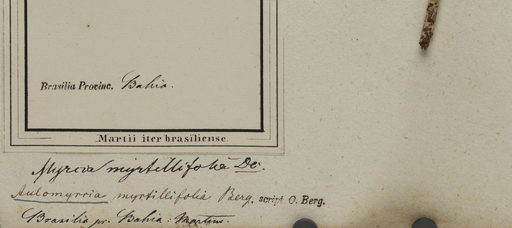 Brasilia Provinc. Bahia.
Martii iter brasiliense.
Myrcia myrtillifolia DC.
Aulomyrcia myrtillifolia Berg. script. O. Berg.
Brasilia pr. Bahia: Martius.